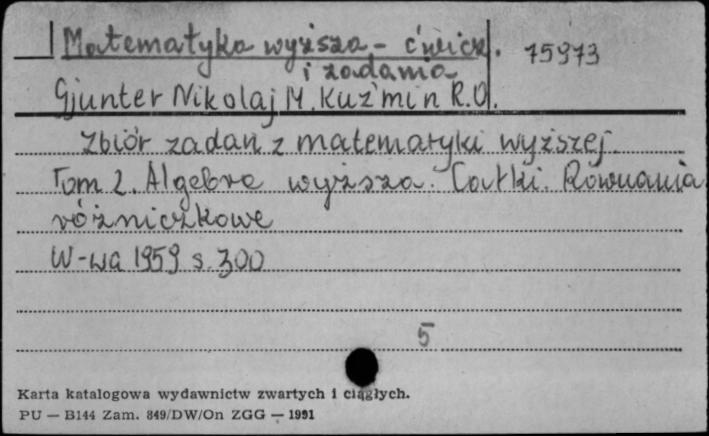 Matematyka wyższa - ćwicz. 75973
i zadania
Gjunter Nikolaj M. Kuz'min R.O.
Zbiór zadań z matematyki wyższej.
Tom 2. Algebra wyższa. Całki. Równania
różniczkowe
W-wa 1959 s. 300
5
Karta katalogowa wydawnictw zwartych i ciągłych.
PU — B144 Zam. 849/DW/On ZGG — 1991